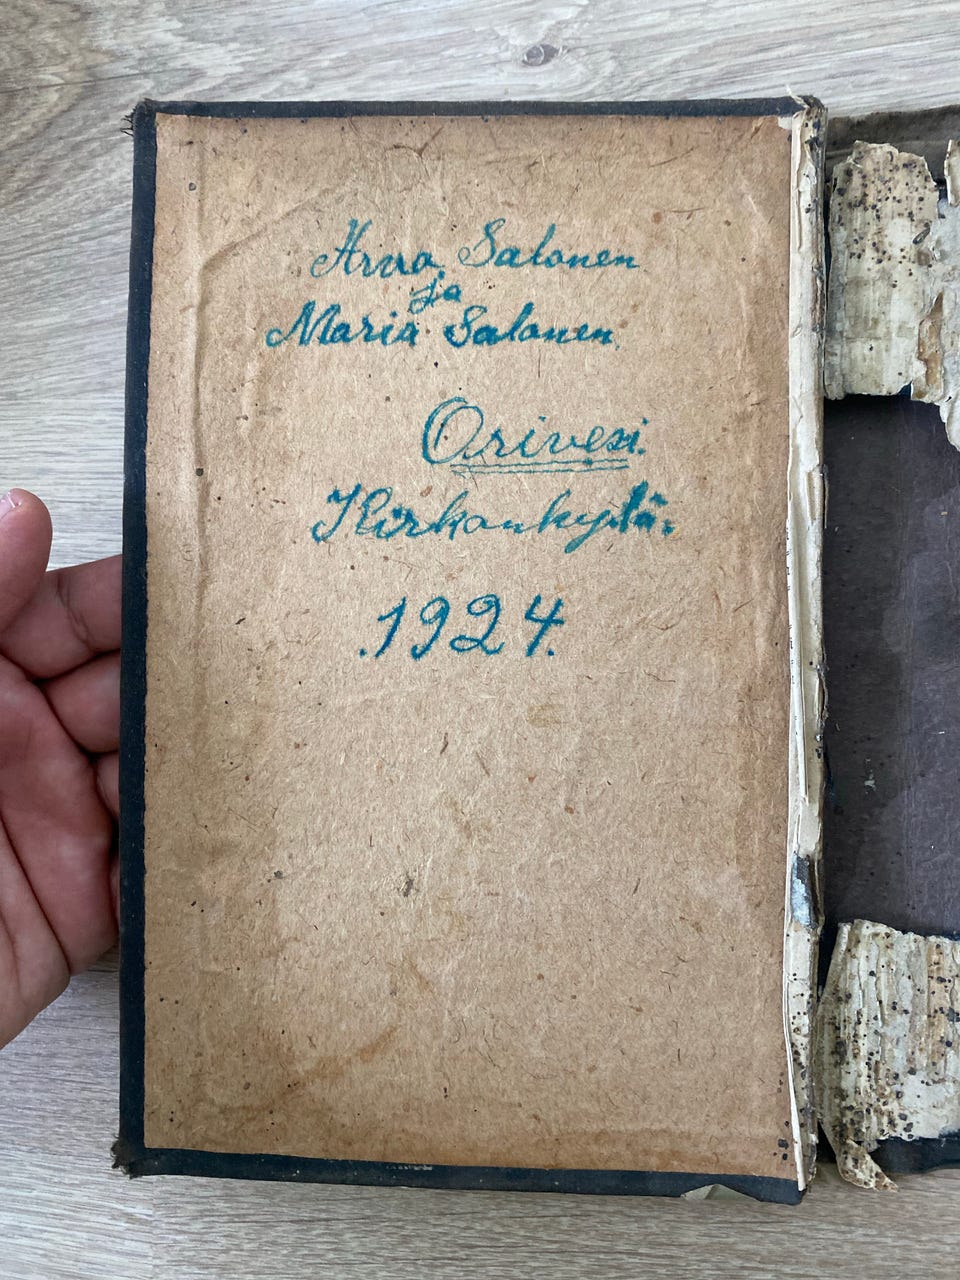 Arvo Salonen
ja
Maria Salonen.
Orivesi.
Kirkonkylä.
.1924.